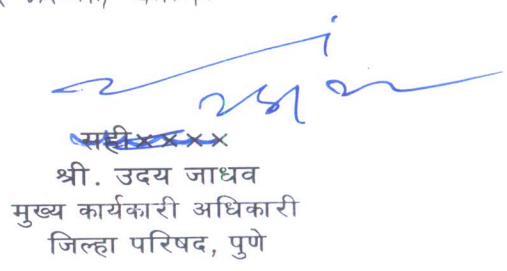 सही××××
श्री. उदय जाधव
मुख्य कार्यकारी अधिकारी
जिल्हा परिषद, पुणे